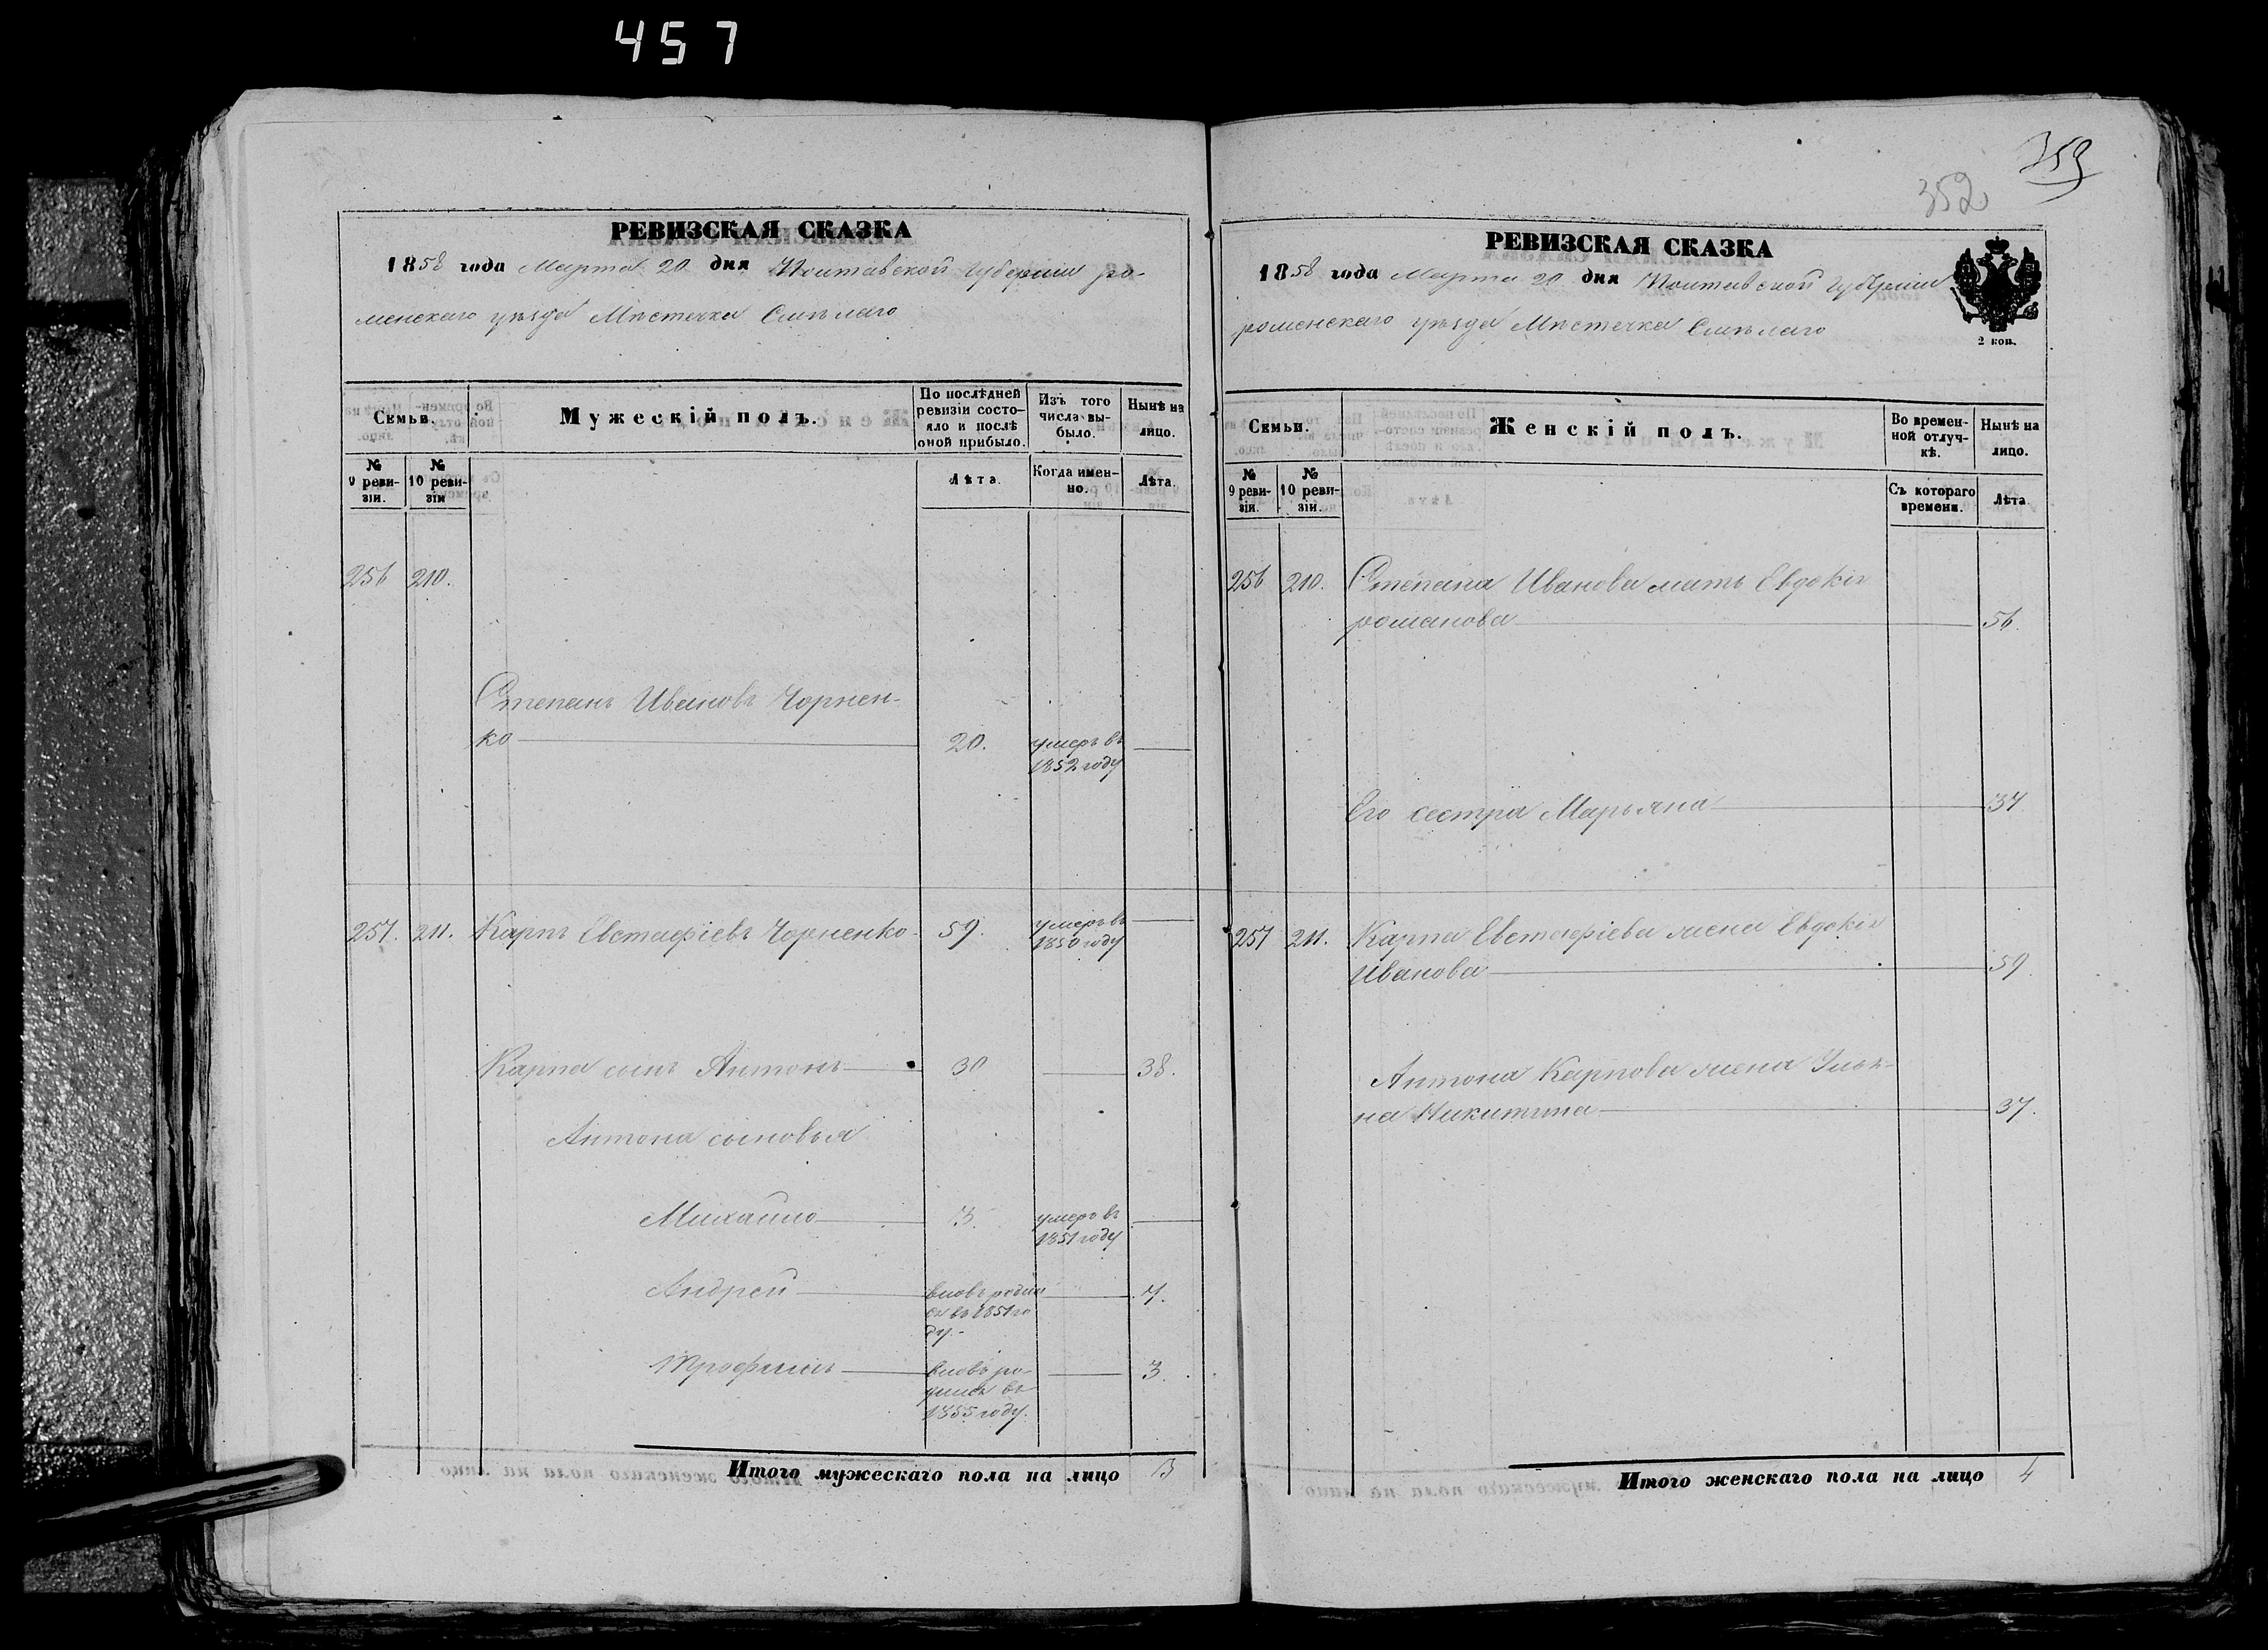 457
РЕВИЗСКАЯ СКАЗКА
1858 года Марта 20 дня Полтавской Губернии ро-
менскаго уѣзда Мѣстечка Смѣлаго
Семьи.
Мужескій полъ.
По послѣдней ревизіи состо-
яло и послѣ оной прибыло.
Изъ того числа вы-
было.
Нынѣ на лицо.
№ 9 реви-
зіи.
№ 10 реви-
зіи
Лѣта.
Когда имен-
но.
Лѣта.
256 210.
Степанъ Ивановъ Чорнен-
ко 20. умеръ въ
1852 году
257. 211. Карпъ Евстафіевъ Чорненко 59. умеръ въ
1850 году
Карпа сынъ Антонъ 30 38.
Антона сыновья
Михайло 3. умеръ въ
1851 году
Андрей вновь родил
ся въ 1851 го
ду. 7.
Трофимъ вновь ро-
дился въ
1855 году. 3.
Итого мужескаго пола на лицо 3
353
352
РЕВИЗСКАЯ СКАЗКА
1858 года Марта 20 дня Полтавской Губерніи
роменскаго уѣзда Мѣстечка Смѣлаго
2 коп.
Семьи.
Женскій полъ.
Во времен-
ной отлуч-
кѣ.
Нынѣ на лицо.
№ 9 реви-
зіи.
№ 10 реви-
зіи.
Съ котораго времени.
Лѣта
256 210. Степана Иванова мать Евдокія
романова 56.
Его сестра Марьяна 37
257 211. Карпа Евстафіева жена Евдокія
Иванова 59.
Антона Карпова жена Улья-
на Никитина 37.
Итого женскаго пола на лицо 4